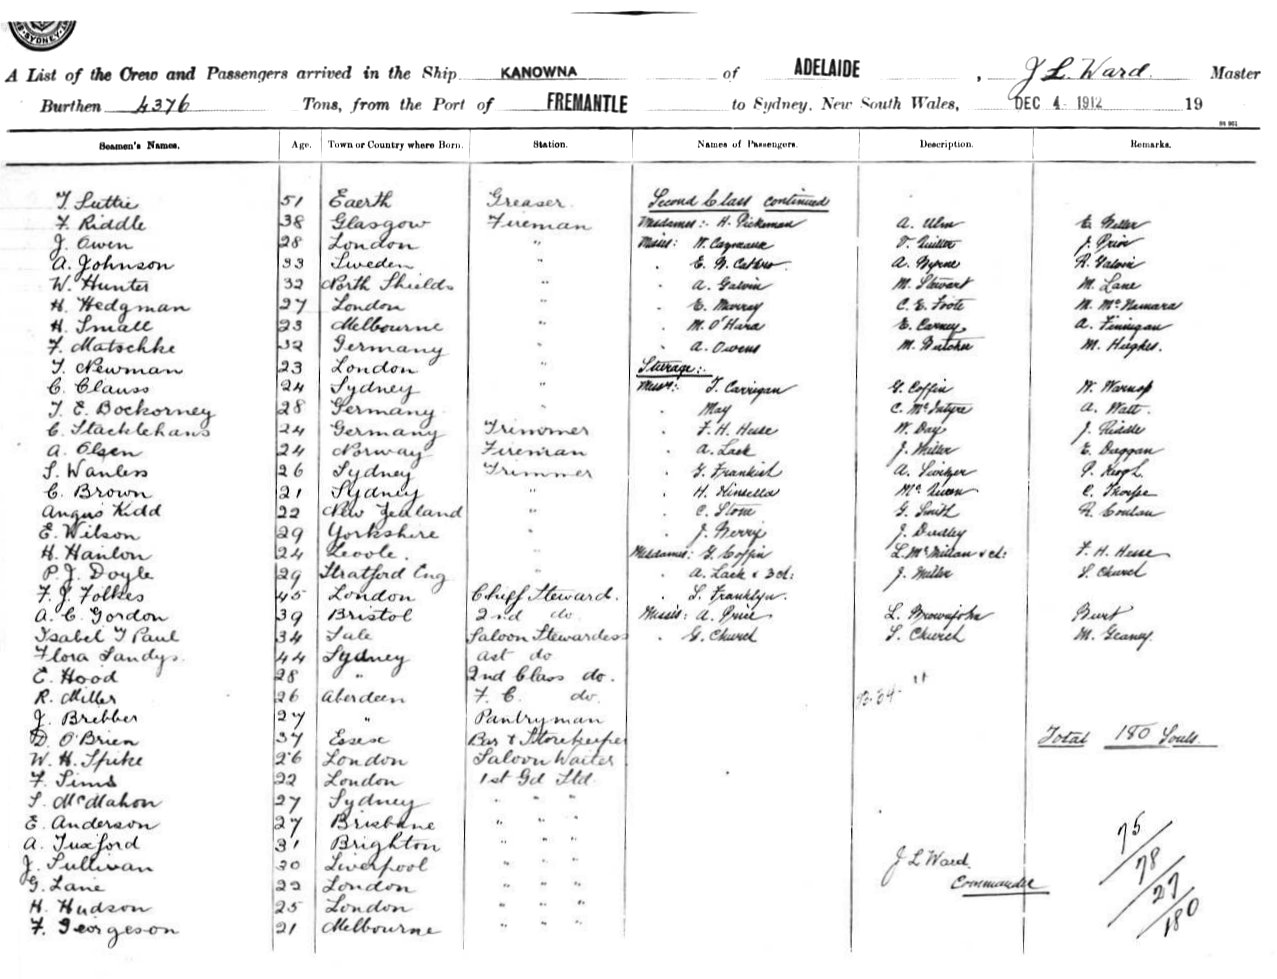 SYDNEY
A List of the Crew and Passengers arrived in the Ship KANOWNA of ADELAIDE, J L. Ward. Master
Burthen 4376 Tons, from the Port of FREMANTLE to Sydney, New South Wales, DEC 4 1912 19
Seamen's Names. Age. Town or Country where Born. Station. Names of Passengers. Description. Remarks.
51 Greaser Second Class continued
F. Riddle 38 Glasgow Fireman Mesdames:- H. A. Ulm E.
J. Owen 28 London " Misses: W. J. Prior
A. Johnson 33 Sweden " . E. A. Byrne
W. Hunter 32 North Shields " . A. Galvin M. Stewart M. Lane
H. Hedgman 27 London " . E. Murray C. E. Foote M. McNamara
H. Small 23 Melbourne " . M. O'Hara E. Carney A. Finnigan
F. Matschke 32 Germany " . A. Owens M. Butcher M. Hughes.
T. Newman 23 London " Steerage:-
C. Clauss 24 Sydney " Messrs: T. Carrigan G. Coffin W. Warnop
T. E. Bockorney 28 Germany " . May C. McIntyre A. Watt.
C. Stacklehans 24 Germany Trimmer . F. H. Hesse W. Day J. Riddle
A. Olsen 24 Norway Fireman . A. Lack J. Miller E. Duggan
S. Wanless 26 Sydney Trimmer . G. A. P. Keogh
C. Brown 21 Sydney " . H. Kinsella C. Thorpe
Angus Kidd 22 New Zealand " . C. Stone G. Smith
E. Wilson 29 Yorkshire " . J. Berry J. Dudley
H. Hanlon 24 " Mesdames: G. Coffin L. McMillan & ch: F. H. Hesse
P. J. Doyle 29 Stratford Eng " . A. Lack & 3 ch: J. Miller S. Church
F. J. Folkes 45 London Chief Steward. . S. Franklyn.
A. C. Gordon 39 Bristol 2nd do. Misses: A. Price L. Brownjohn Burt
Isabel T Paul 34 Sale Saloon Stewardess . G. Church S. Church M. Geaney.
Flora Sandys. 44 Sydney ast do
E. Hood 28 " 2nd Class do.
R. Miller 26 Aberdeen F. C. do.
J. Brebber 27 " Pantryman
D. O'Brien 37 Essex Bar & Storekeeper Total 180 Souls.
W. H. Spike 26 London Saloon Waiter
F. Sims 22 London 1st Gd Std.
S. McMahon 27 Sydney " " "
E. Anderson 27 Brisbane " " " 75
A. Tuxford 31 Brighton " " "
J. Sullivan 30 Liverpool " " " J L Ward. 78
G. Lane 22 London " " " Commander 27
H. Hudson 25 London " " " 180
F. Georgeson 21 Melbourne " " "